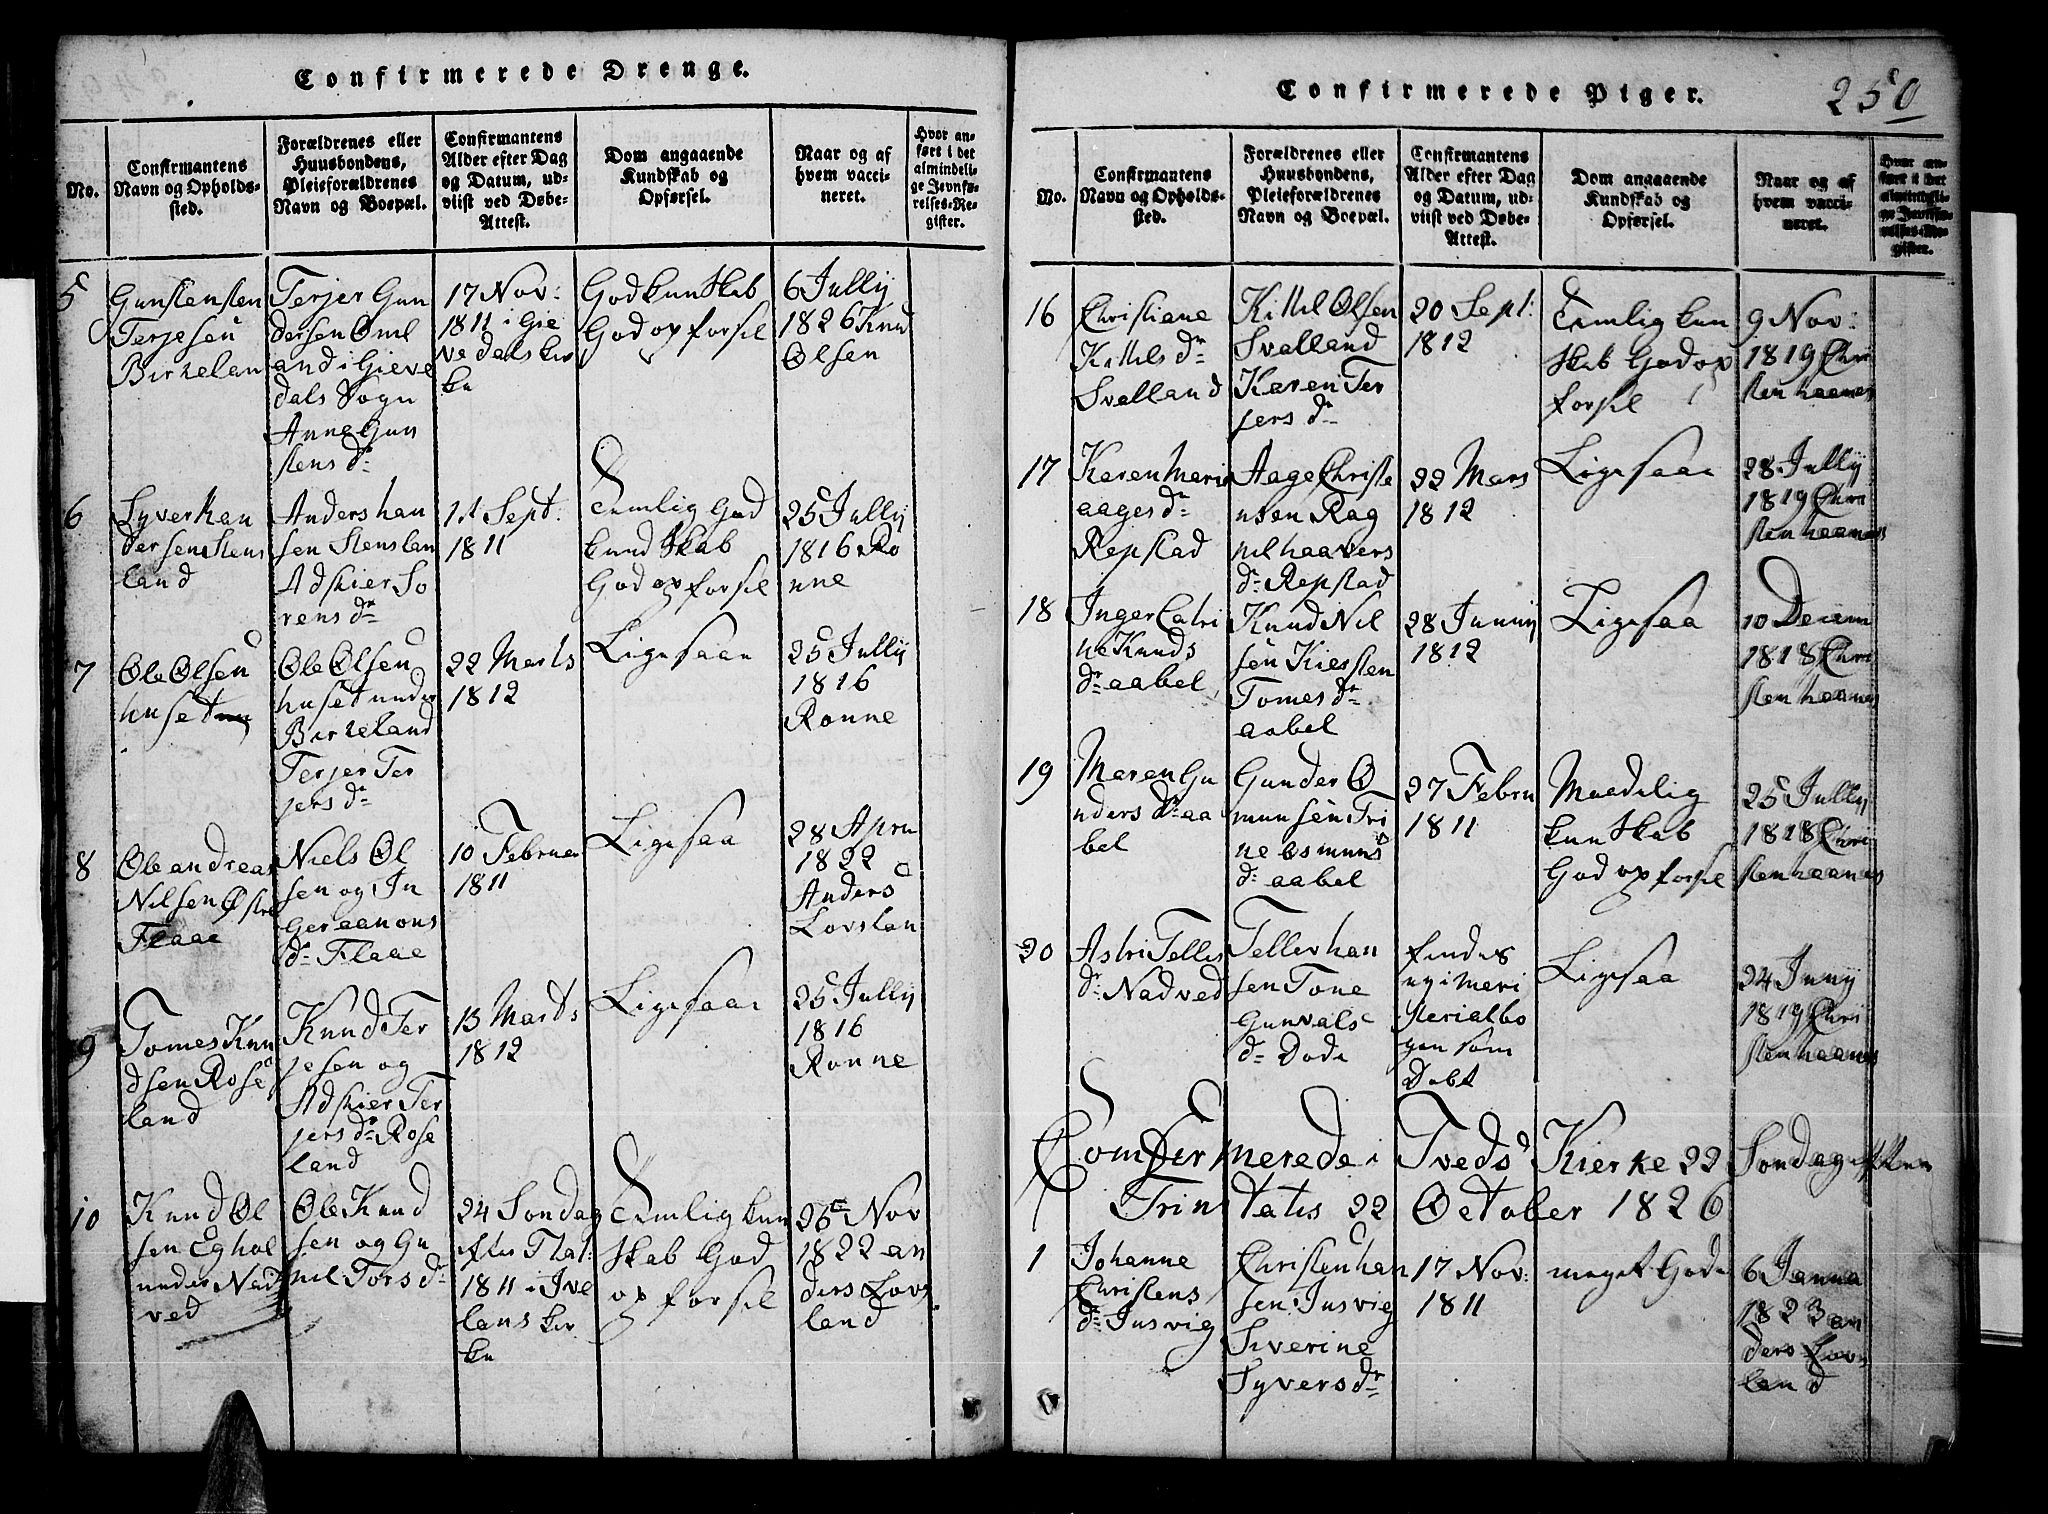 Confirmerede Drenge.
No.
Confirmantens
Navn og Opholds-
sted.
Forældrenes eller
Huusbondens,
Pleieforældrenes
Navn og Boepæl.
Confirmantens
Alder efter Dag
og Datum, ud-
viist ved Døbe-
Attest.
Dom angaaende
Kundskab og
Opførsel.
Naar og af
hvem vacci-
neret.
Hvor an-
ført i det
almindeli-
ge Jevnfø-
relses-Re-
gister.
5
Gunstensten
Terjesen
Birkelan
Terjer Gun
dersen Oml
and i Gieve
dals Sogn
Anne Gun
stens dr
17 Nov:
1811 i Gie
vedals kir
ke
God kunskab
God opforsel
6 Jullij
1826 Knu
Olsen
6
Syver han
dersen Stens
land
Anders han
sen Stenslan
Adskier So
rens dr
11 Sept:
1811
Temlig God
kundskab
God opforsel
25 Jullij
1816 Ro
nne
7
Ole Olsen
huset
Ole Olsen
huset under
Birkeland
Terjer Ter
jers dr
22 Marts
1812
Ligesaae
25 Jullij
1816
Ronne
8
Ole andreas
Nilsen Østre
Flaae
Niels Ol
sen og In
ger aanons
dr Flaae
10 Februa
1811
Ligesaa
28 Apru
1822
Anders
Lovslan
9
Tomes Knu
dsen Rose
land
Knud Ter
jesen og
Adskier Ter
jers dr Rose
land
13 Marts
1812
Ligesaae
25 Jullij
1816
Ronne
10
Knud Ol
sen Eghol
under Nad
ved
Ole Knud
sen og Gu
nil Tors dr
24 Sondag
efter Trat:
1811 i Ive
lans kir
ke
Temlig kun
skab God
opforsel
26 Nov
1822 an
ders Lovs
land
Confirmerede Piger.
250
No.
Confirmantens
Navn og Opholds-
sted.
Forældrenes eller
Huusbondens,
Pleieforældrenes
Navn og Boepæl.
Confirmantens
Alder efter Dag
og Datum, ud-
viist ved Døbe-
Attest.
Dom angaaende
Kundskab og
Opførsel.
Naar og af
hvem vacci-
neret.
Hvor an-
ført i det
almindeli-
ge Jevnfø-
relses-Re-
gister.
16
Christiane
Kittels dr
Svalland
Kittel Olsen
Svalland
Karen Ter
jers dr
20 Sept:
1812
Temlig kun
skab God op
forsel
9 Nov:
1819 Chri
sten haanes
17
Karen Marie
aages dr
Repstad
Aage Christe
nsen Rag
nil haavers
dr Repstad
22 Mars
1812
Ligesaae
28 Jullij
1819 Chri
sten haanes
18
Inger Catri
ne Knuds
dr aabel
Knud Nil
sen Kiersten
Tomes dr
aabel
28 Junnij
1812
Ligesaa
10 Decem
1818 Chri
sten haanes
19
Maren Gu
nders dr aa
bel
Gunder O
munsen Tri
ne osmuns
dr aabel
27 Febru
1811
Maadelig
kunskab
God opforsel
25 Jullij
1818 Chri
sten haanes
20
Astri Telles
dr Nadved
Tellev han
sen Tone
Gunvals
dr Dode
findes
ey i Meni
sterialbo
gen som
Dobt
Ligesaa
24 Junij
1819 Chri
sten haanes
Comfermerede i Tveds Kierke 22 Sondag efter
Trinitatis 22 October 1826
1
Johanne
Christens
dr Jusvig
Christen han
sen Jusvig
Siverine
Syvers dr
17 Nov:
1811
meget Gode
6 Janua
1823 an
ders Lovs
land